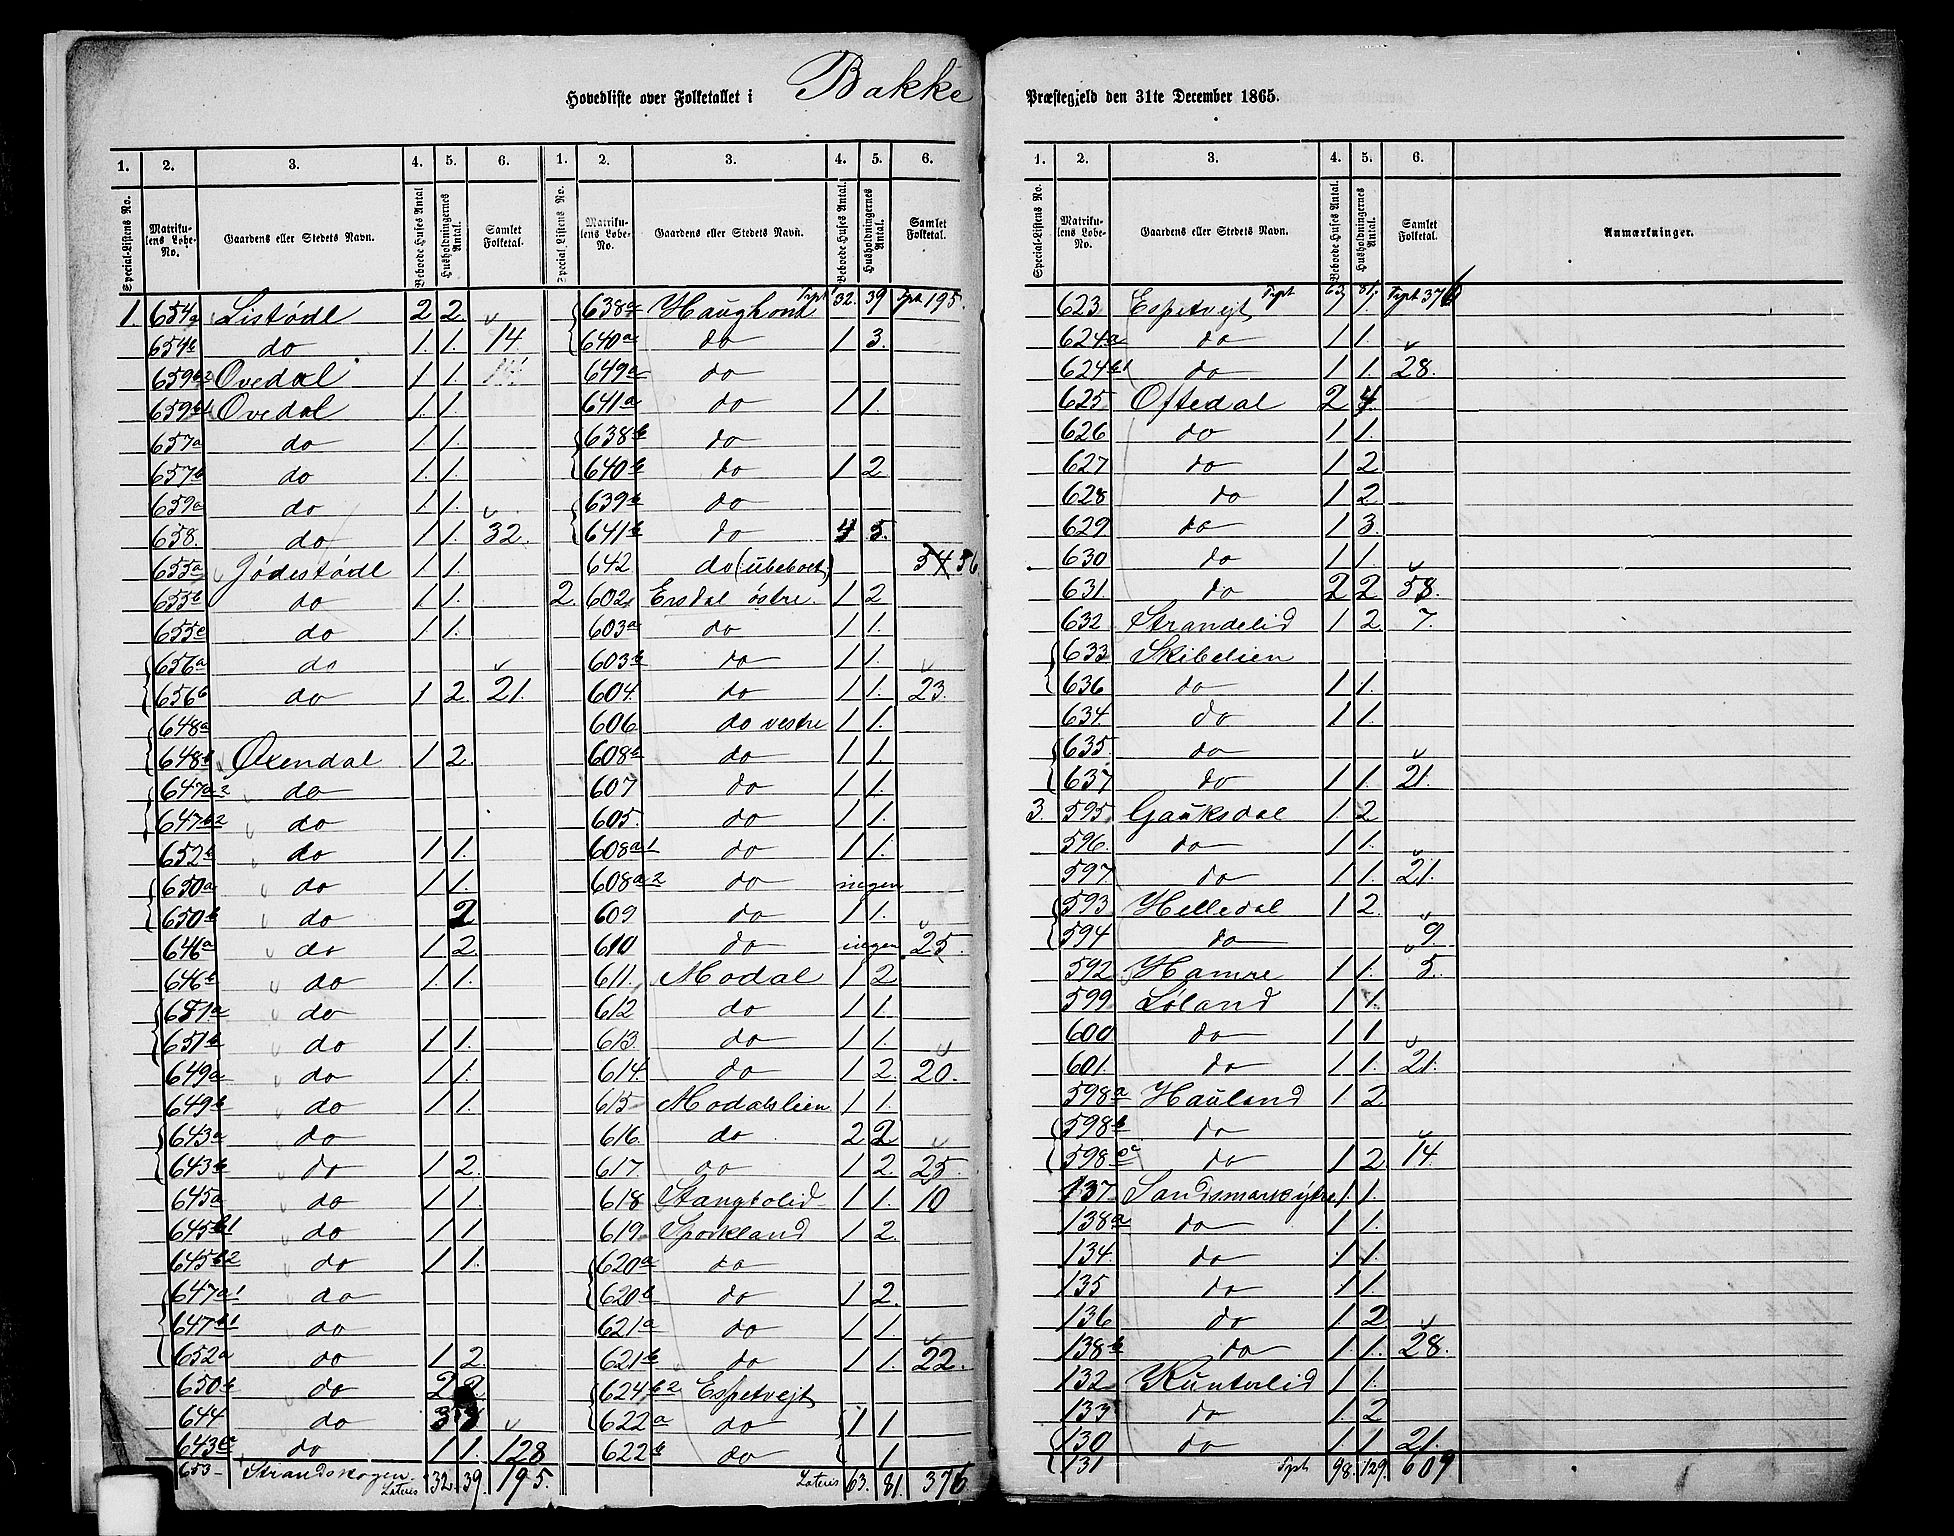 Hovedliste over Folketallet i Bakke Præstegjeld den 31te December 1865.
1. 2. 3. 4. 5. 6. 1. 2. 3. 4. 5. 6.
Special-Listens No. Matrikulens Løbe-No. Gaardens eller Stedets Navn. Beboede Huses Antal Husholdningernes Antal. Samlet Folketal. Special Listens No. Matrikulens Løbe-No. Gaardens eller Stedets Navn. Beboede Huses Antal. Husholdningernes Antal. Samlet Folketal.
1. 654a Listødl 2 2.
654b do 1. 1. 14
659b2 Ovedal 1 1.
659b1 Ovedal 1. 1.
657a do 1 1.
657b do 1. 1.
659a do 1 1.
658. do 1 1. 32.
655a Jødestødl 1 1.
655b do 1 1.
655c do 1 1.
656a do
656b do 1 2. 21.
648a
648b Oxendal 1 2.
647a2 do
647b2 do
652b do 1 1.
650a do 1 1.
650b do 2
646a do 1 2.
646b do 1. 1.
651a do
651b do 1 1.
649a do 1 1.
649b do 1 1.
643a do
643b do 1 2.
645a do 1 1.
645b1 do 1 1
645b2 do 1 1.
647a1 do
647b1 do
652a do 1 2
650b do 2 2.
644 do 3 3
643c do 1 1. 128
653 Strandskogen.
Lateris 32. 39. 195.
638a Haughom Trpt 32. 39 Trpt 195.
640a do 1 3.
649a do
641a do 1 1.
638b do
640b do 1 2
639a do
641b do 4 5.
642 do (ubeboet) 54 56
2. 602. Ersdal østre. 1 2
603a do 1 1.
603b do 1 1.
604. do 1 1. 23.
606 do vestre 1 1.
608b do 1 1
607 do 1 1.
605. do 1 1.
608a1 do 1 1.
608a2 do ingen
609 do 1 1.
610 do ingen 25.
611. Modal 1 2
612 do 1 1.
613. do 1 1.
614. do 1 2. 20.
615 Modalslien 1 1.
616. do 2 2.
617. do 1 2. 25.
618 Stangbolid 1 1. 10
619. Sporkland 1 2.
620a do
620b do 1 2.
621a do 1 1.
621b do 1 1. 22.
624b2 Espetvejt
622a do 1 1
622b do 1
Lateris 63. 81. 376
1. 2. 3. 4. 5. 6.
Special-Listens No. Matrikulens Løbe-No. Gaardens eller Stedets Navn. Beboede Huses Antal. Husholdningernes Antal. Samlet Folketal. Anmærkninger.
Trpt 63 81. Trpt 376
623 Espetvejt 1 1.
624a do 1 1.
624b1 do 1 1. 28.
625 Oftedal 2 4.
626 do 1 1.
627 do 1 2
628 do 1 2
629 do 1 3.
630 do 1 1.
631 do 2 2 58.
632 Strandelid 1 2 7.
633 Skibelien
636 do 1 1.
634. do 1 1.
635. do
637 do 1 1. 21.
3. 595. Gauksdal 1 2
596. do 1 1.
597. do 1 1. 21.
593 Helledal 1 2.
594 do 9.
592 Hamre 1 1. 5.
599 Løland 1 1.
600 do 1 1
601. do 1 1. 21.
598a Hauland 1 2
598b do
598c do 1 2 14.
137 Sandsmark ytre 1. 1.
138a do 1 1.
134. do 1 1.
135 do 1 1.
136 do 1 2
138b do 1. 1. 28.
132 Kunterlid 1 1.
133 do 1. 2
130 do 1. 1. 21.
131 Trpt 98. 129. 609